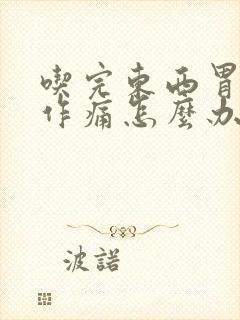 喫完東西胃
作痛怎麼办
波諾